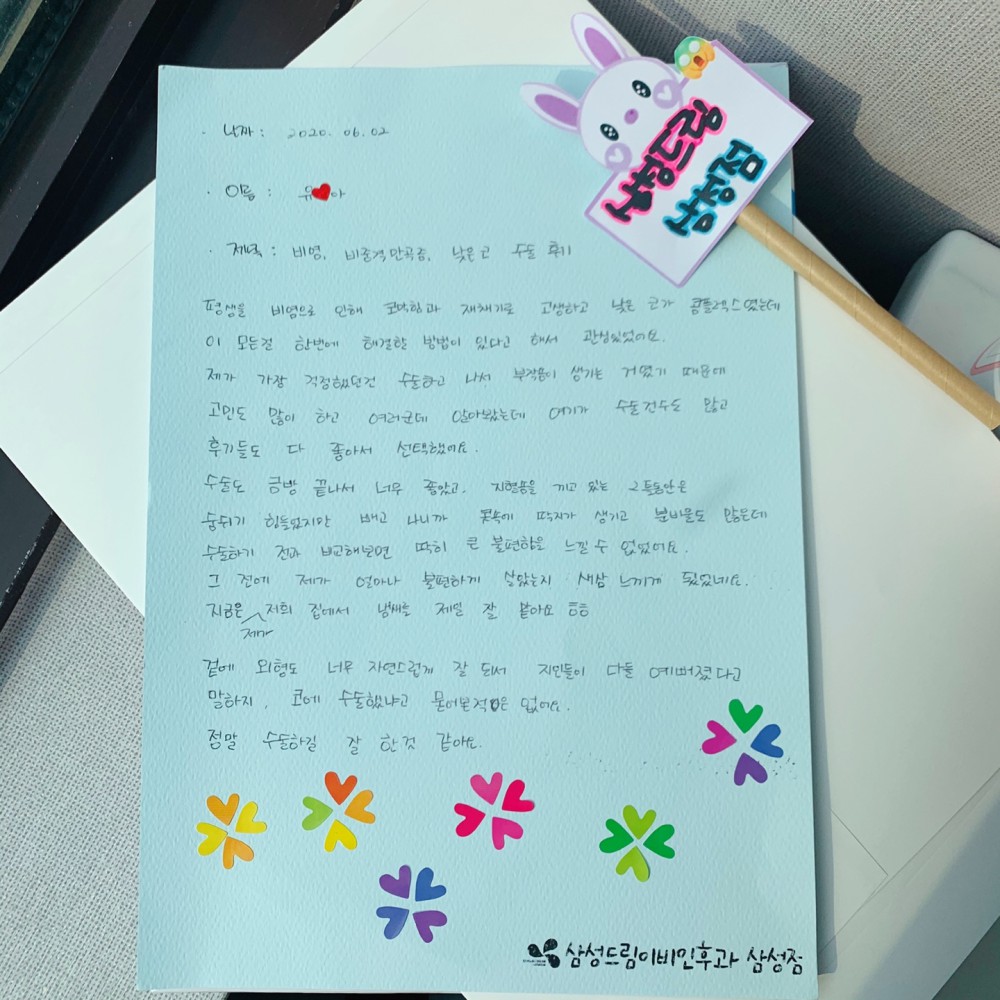 · 날짜 : 2020. 06. 02
· 이름 : 유❤아
· 제목 : 비염, 비중격만곡증, 낮은코 수술 후기
평생을 비염으로 인해 코막힘과 재채기로 고생하고 낮은 코가 콤플렉스였는데
이 모든걸 한번에 해결할 방법이 있다고 해서 관심있었어요.
제가 가장 걱정했던건 수술하고 나서 부작용이 생기는 거였기 때문에
고민도 많이 하고 여러군데 알아봤는데 여기가 수술건수도 많고
후기들도 다 좋아서 선택했어요.
수술도 금방 끝나서 너무 좋았고, 지혈솜을 끼고 있는 2틀동안은
숨쉬기 힘들었지만 빼고 나니까 콧속에 딱지가 생기고 분비물도 많은데
수술하기 전과 비교해보면 딱히 큰 불편함을 느낄 수 없었어요.
그 전에 제가 얼마나 불편하게 살았는지 새삼 느끼게 됐었네요.
지금은 제가 저희 집에서 냄새를 제일 잘 맡아요 ㅎㅎ
겉에 외형도 너무 자연스럽게 잘 되서 지인들이 다들 예뻐졌다고
말하지, 코에 수술했냐고 물어본적은 없어요.
정말 수술하길 잘 한것 같아요.
삼성드림이비인후과 삼성점